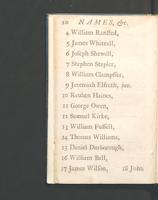 10 NAMES, &c.
4 William Ransted,
5 James Whiteall,
6 Joseph Shewell,
7 Stephen Stapler,
8 William Clampffer,
9 Jeremiah Elfreth, jun.
10 Reuben Haines,
11 George Owen,
12 Samuel Kirke,
13 William Fussell,
14 Thomas Williams,
15 Daniel Darborough,
16 William Bell,
17 James Wilson, 18 John